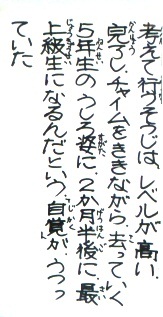 考えて行うそうじは、レベルが高い。
完了し、チャイムをききながら去っていく
5年生のうしろ姿に、2か月半後に、最
上級生になるんだという、自覚が、うつっ
ていた